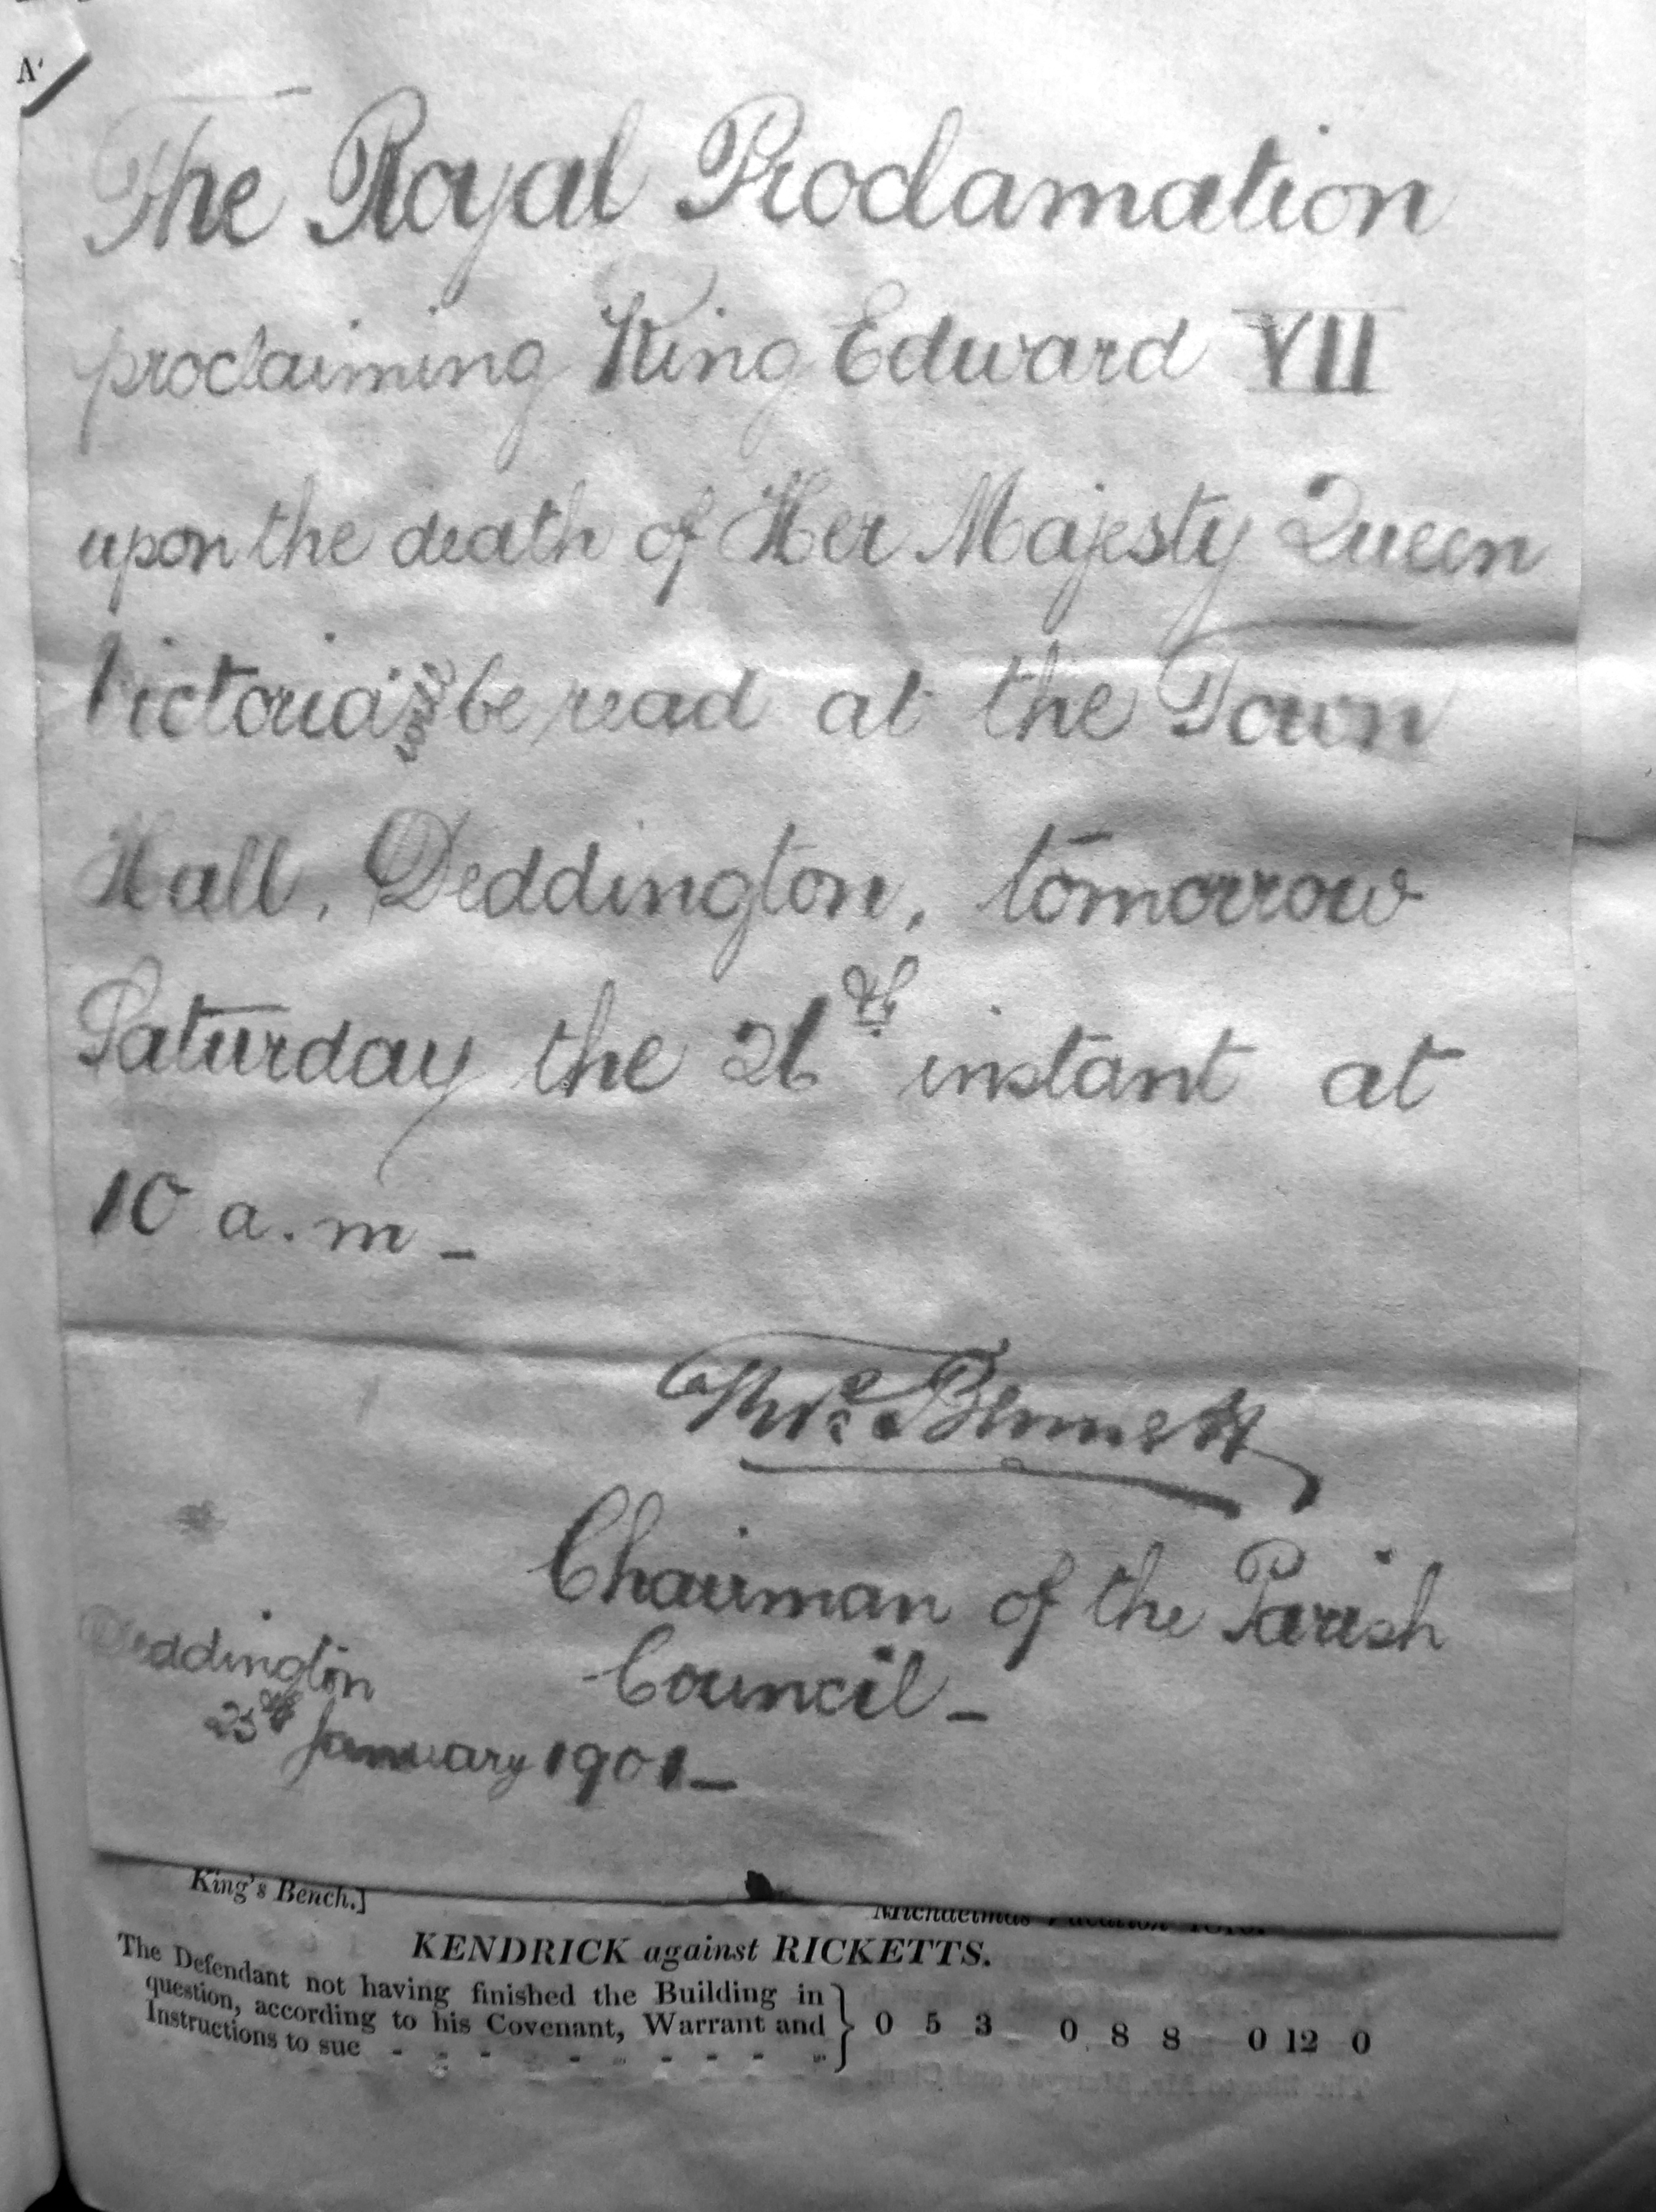 The Royal Proclamation
proclaiming King Edward VII
upon the death of Her Majesty Queen
Victoria will be read at the Town
Hall, Deddington, tomorrow
Saturday the 26th instant at
10 a.m -
Thos Bennett
Chairman of the Parish
Council -
Deddington
25th January 1901 -
King's Bench.]
Michaelmas Vacation
KENDRICK against RICKETTS.
The Defendant not having finished the Building in
question, according to his Covenant, Warrant and
Instructions to sue - - - - - - - - 0 5 3 0 8 8 0 12 0